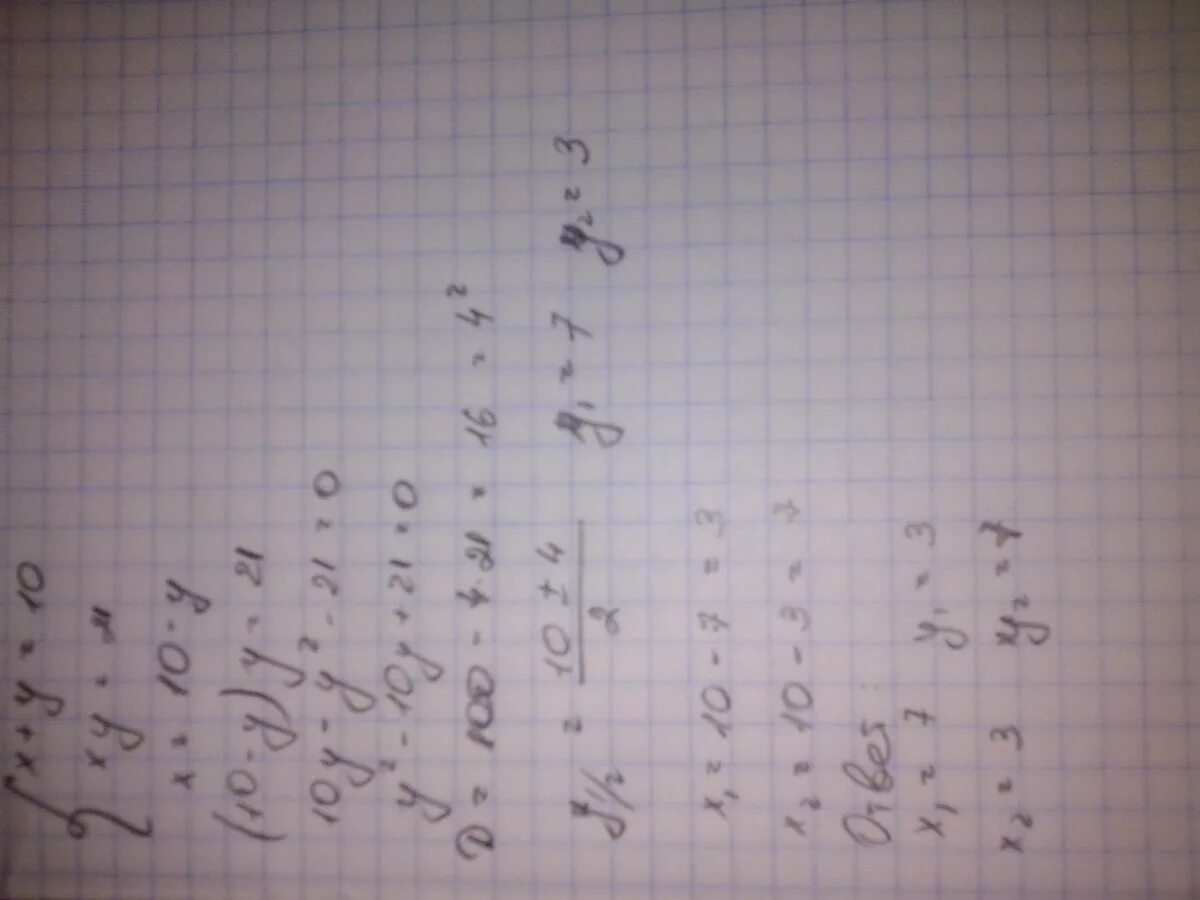 x + y = 10
xy = 21
x = 10 - y
(10 - y) y = 21
10y - y² - 21 = 0
y² - 10y + 21 = 0
D = 100 - 4·21 = 16 = 4²
y1/2 = (10 ± 4)/2 y₁ = 7 y₂ = 3
x₁ = 10 - 7 = 3
x₂ = 10 - 3 = 7
Ответ:
x₁ = 7 y₁ = 3
x₂ = 3 y₂ = 7